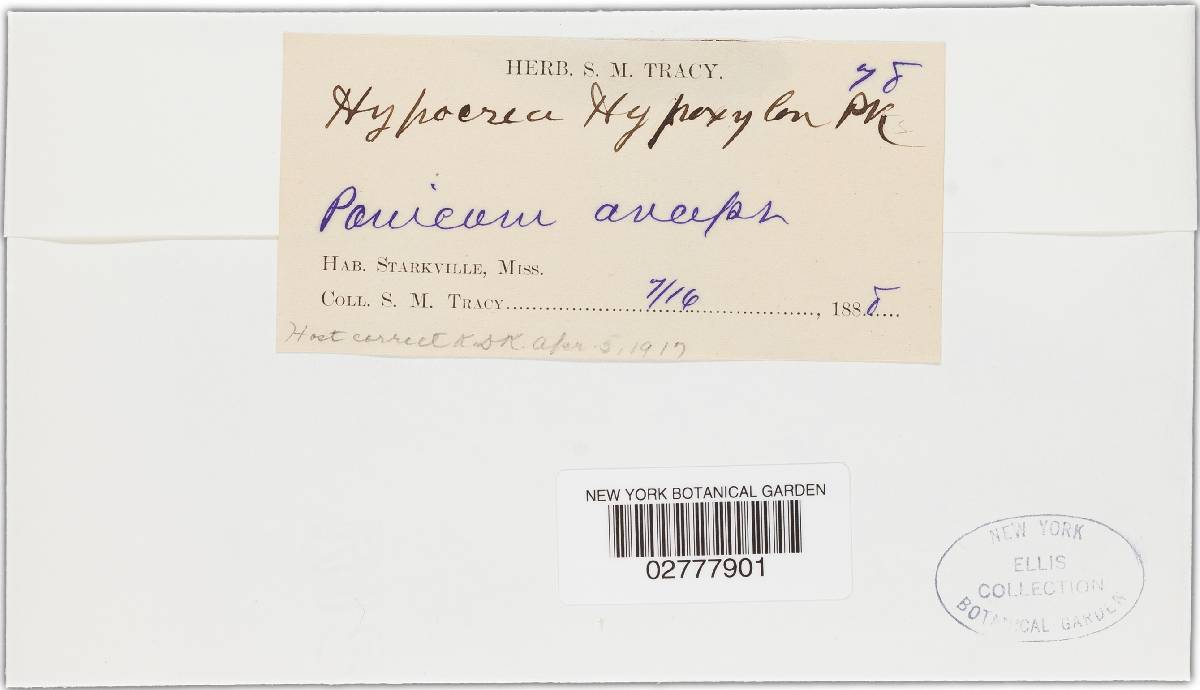 HERB. S. M. TRACY.
78
Hypocrea Hypoxylon PK
Panicum anceps
HAB. STARKVILLE, MISS.
COLL. S. M. TRACY........7/16........, 1888....
Host correct K.D.K. Apr. 5, 1917
NEW YORK BOTANICAL GARDEN
02777901
NEW YORK
ELLIS
COLLECTION
BOTANICAL GARDEN